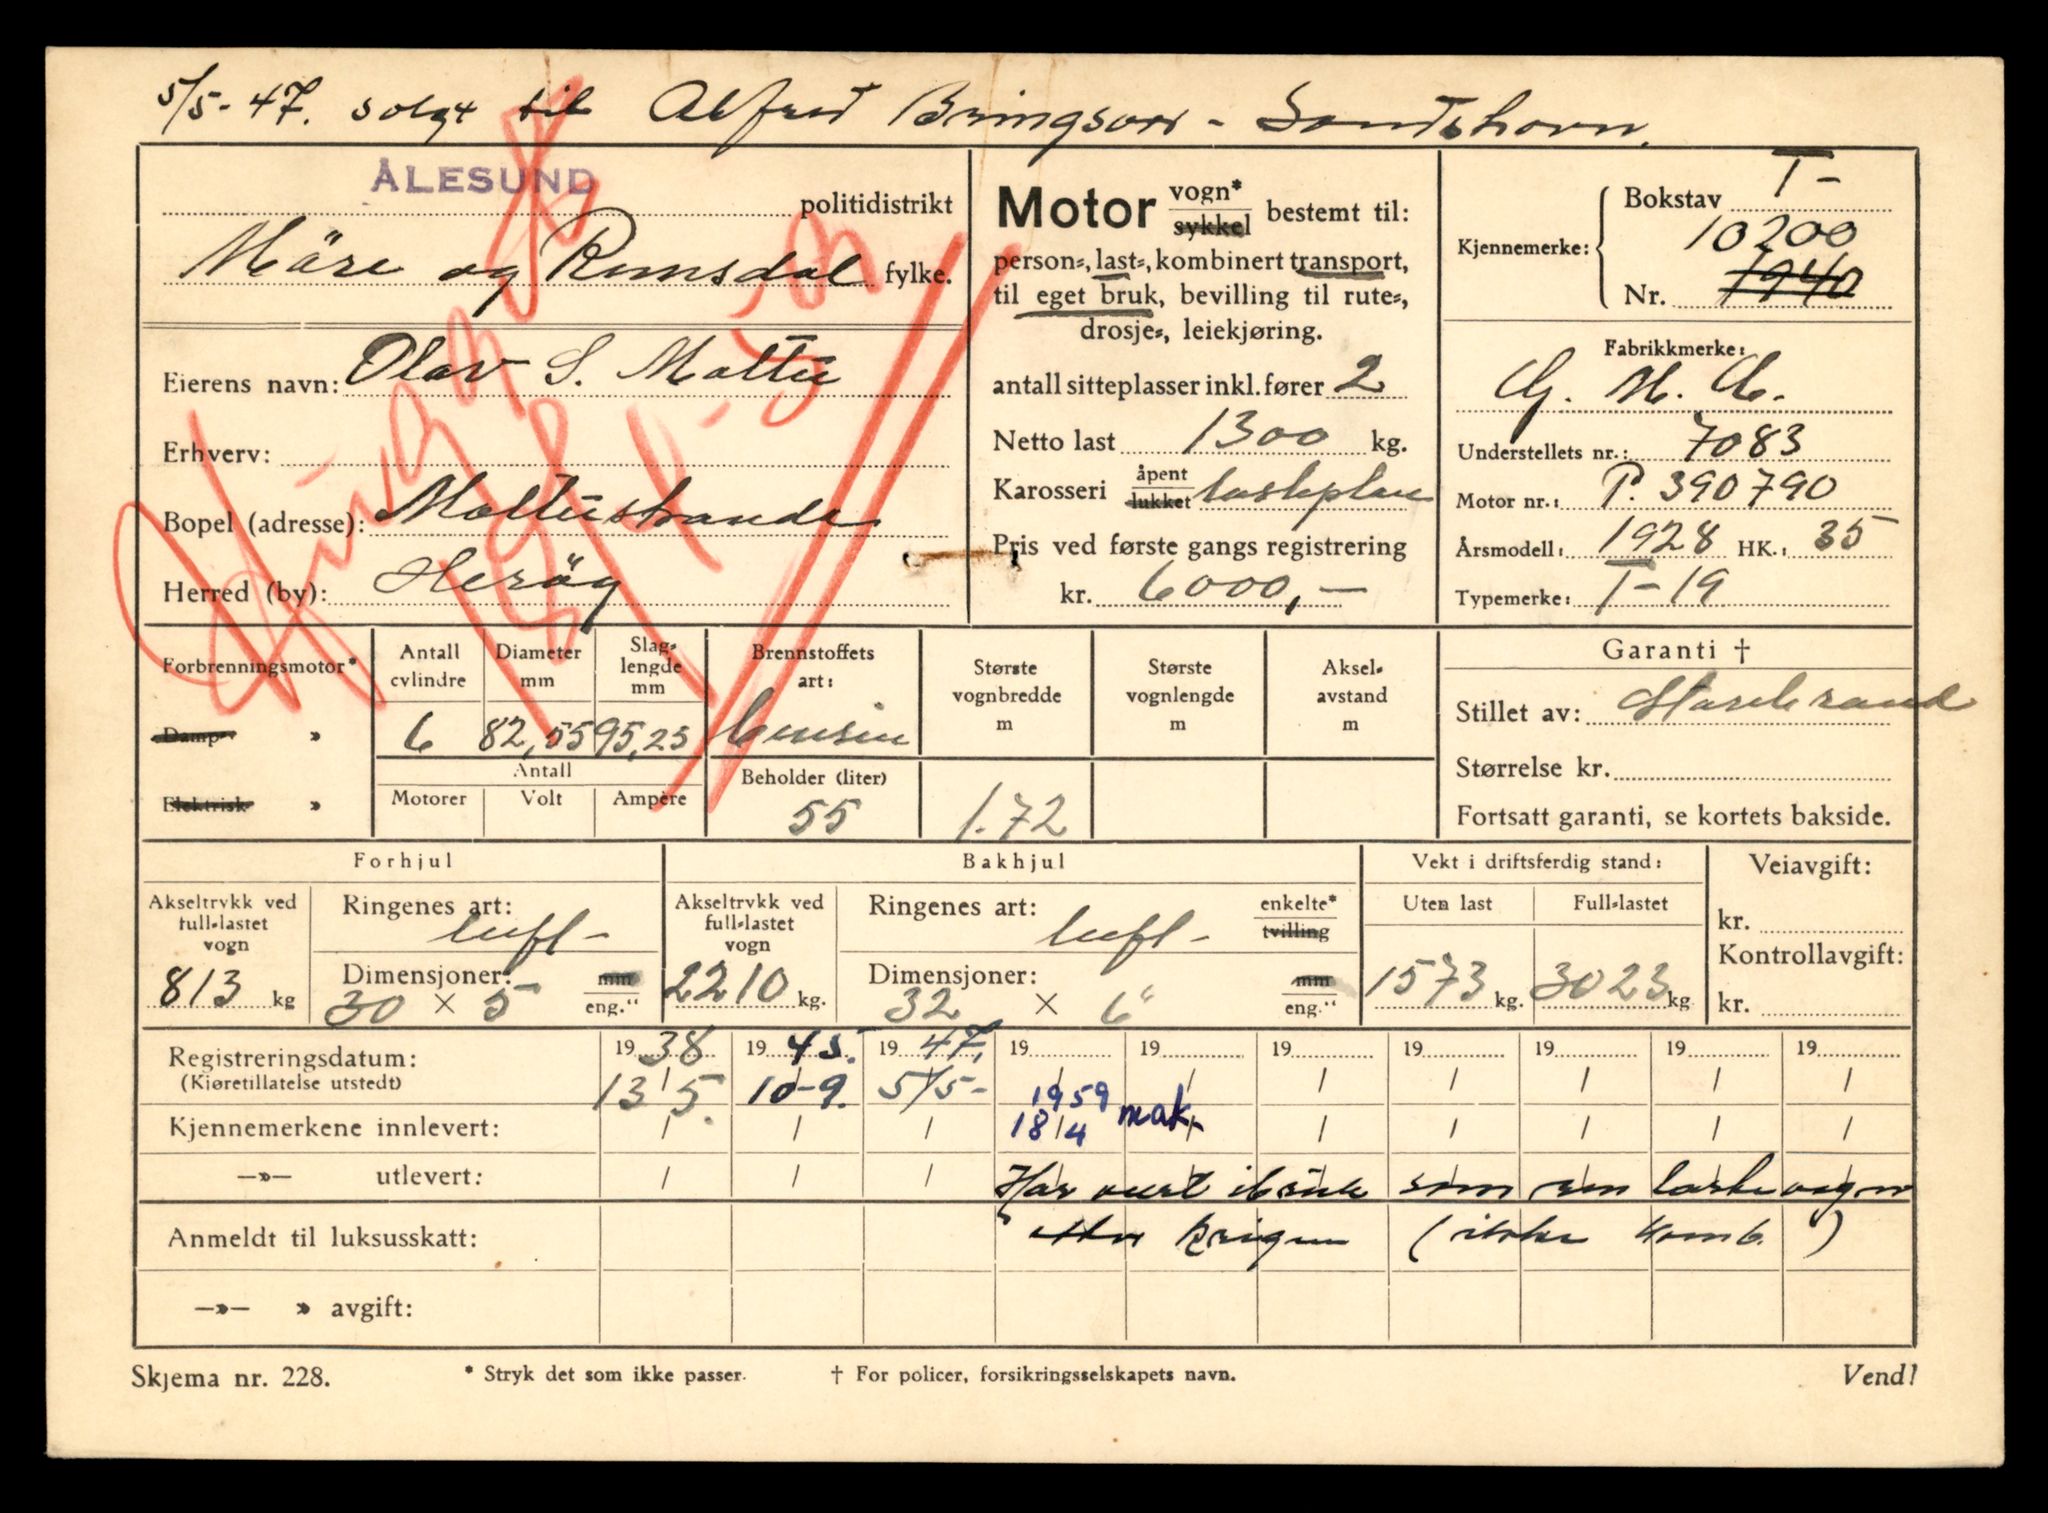 5/5-47. solgt til Alfred Bringsvor - Sandshavn.
ÅLESUND politidistrikt
Möre og Romsdal fylke.
Eierens navn: Olav S. Moltu
Erhverv:
Bopel (adresse): Moltustranda
Herred (by): Heröy
18/4-59
Motor vogn* sykkel bestemt til:
person-, last-, kombinert transport,
til eget bruk, bevilling til rute-,
drosje-, leiekjøring.
antall sitteplasser inkl. fører 2
Netto last 1300 kg.
Karosseri åpent lukket lasteplan
Pris ved første gangs registrering
kr. 6000,—
Bokstav T-
10200
Kjennemerke:
Nr. 1940
Fabrikkmerke:
G. M. C.
Understellets nr.: 7083
Motor nr.: P. 390790
Årsmodell: 1928 HK.: 35
Typemerke: T-19
Forbrenningsmotor*
Damp- »
Elektrisk »
Antall cylindre
6
Diameter mm
82,55
Slaglengde mm
95,25
Antall
Motorer Volt Ampère
Brennstoffets art:
bensin
Beholder (liter)
55
Største vognbredde m
1.72
Største vognlengde m
Akselavstand m
Garanti †
Stillet av: Storebrand
Størrelse kr.
Fortsatt garanti, se kortets bakside.
Forhjul
Akseltrykk ved full-lastet vogn
813 kg
Ringenes art: luft-
Dimensjoner: mm
30 × 5 eng."
Bakhjul
Akseltrykk ved full-lastet vogn
2210 kg.
Ringenes art: luft- enkelte* tvilling
Dimensjoner: mm
32 × 6" eng."
Vekt i driftsferdig stand:
Uten last Full-lastet
1573 kg. 3023 kg
Veiavgift:
kr.
Kontrollavgift:
kr.
Registreringsdatum: 1938 1945. 1947. 19 19 19 19 19 19 19
(Kjøretillatelse utstedt) 13/5. 10-9. 5/5-
1959
Kjennemerkene innlevert: 18/4 mak.
—»— utlevert: Har vært i bruk som ren lastevogn
Anmeldt til luksusskatt: etter krigen (ikke komb.)
—»— » avgift:
Skjema nr. 228. * Stryk det som ikke passer. † For policer, forsikringsselskapets navn. Vend!